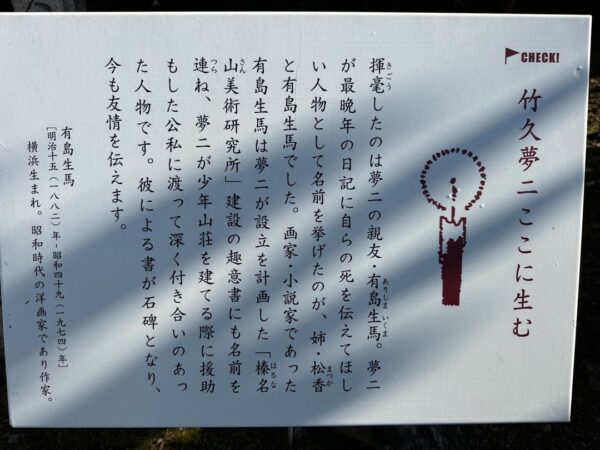 CHECK!
竹久夢二ここに生む
揮毫したのは夢二の親友・有島生馬。夢二
が最晩年の日記に自らの死を伝えてほし
い人物として名前を挙げたのが、姉・松香
と有島生馬でした。画家・小説家であった
有島生馬は夢二が設立を計画した「榛名
山美術研究所」建設の趣意書にも名前を
連ね、夢二が少年山荘を建てる際に援助
もした公私に渡って深く付き合いのあっ
た人物です。彼による書が石碑となり、
今も友情を伝えます。
有島生馬
[明治十五(一八八二)年-昭和四十九(一九七四)年]
横浜生まれ。昭和時代の洋画家であり作家。